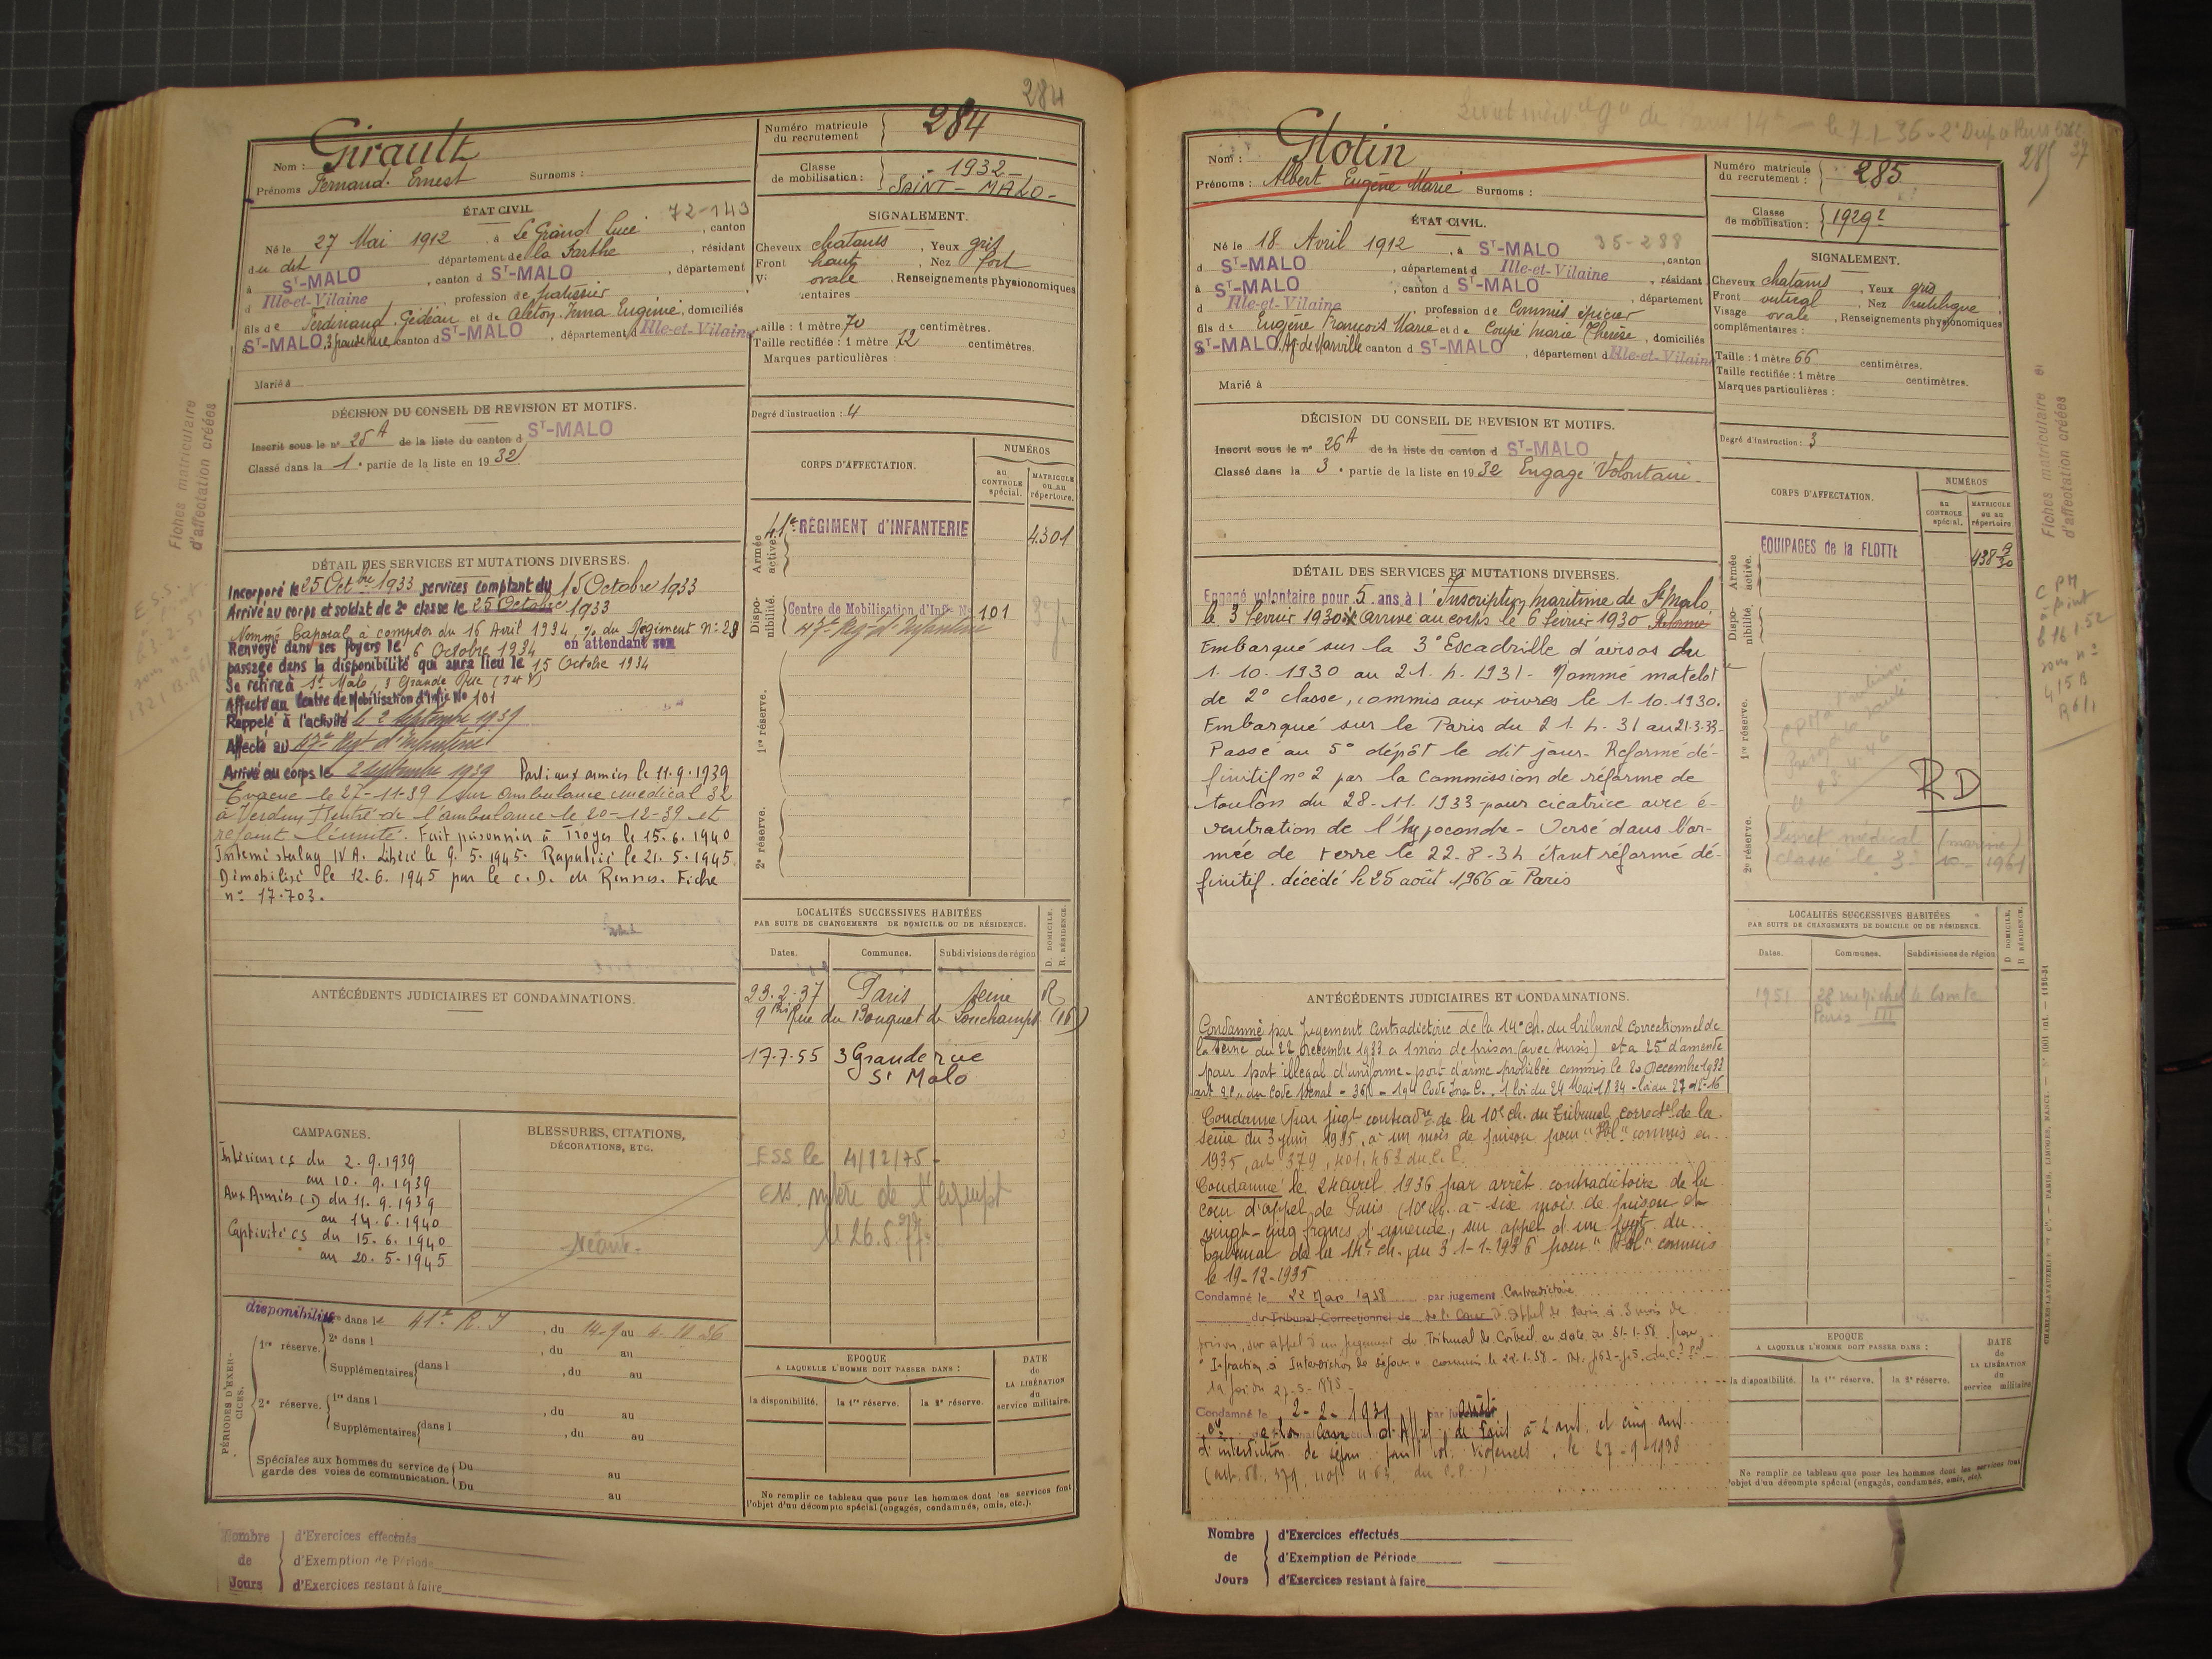 284
Nom : Girault
Prénoms Fernand. Ernest Surnoms :
Numéro matricule du recrutement 284
Classe de mobilisation : - 1932 -
SAINT - MALO -
ÉTAT CIVIL
72-143
Né le 27 Mai 1912, à Le Grand Lucé, canton
du dit département de la Sarthe, résidant
à ST-MALO, canton d ST-MALO, département
d Ille-et-Vilaine, profession de patissier
fils de Ferdinand. Gédéon et de Irma Eugénie, domiciliés
ST-MALO, 3 grande Rue canton d ST-MALO, département d Ille-et-Vilaine
Marié à
SIGNALEMENT.
Cheveux chatains, Yeux gris
Front haut, Nez fort
ovale. Renseignements physionomiques
Taille : 1 mètre 70 centimètres.
Taille rectifiée : 1 mètre 72 centimètres.
Marques particulières :
Degré d'instruction : 4
DÉCISION DU CONSEIL DE REVISION ET MOTIFS.
Inscrit sous le n° 25 A de la liste du canton d ST-MALO
Classé dans la 1e partie de la liste en 1932
Fiches matriculaire
d'affectation créées
CORPS D'AFFECTATION.
NUMÉROS
au CONTROLE spécial.
MATRICULE ou au répertoire.
Armée active.
41e RÉGIMENT d'INFANTERIE 4.301
Disponibilité.
Centre de Mobilisation d'Infie No 101
47e Régt d'Infanterie
1re réserve.
2e réserve.
DÉTAIL DES SERVICES ET MUTATIONS DIVERSES.
Incorporé le 25 Octbre 1933 services comptant du 15 Octobre 1933
Arrivé au corps et soldat de 2e classe le 25 Octobre 1933
Nommé Caporal à compter du 16 Avril 1934, % du Régiment N° 29
Renvoyé dans ses foyers le 6 Octobre 1934 en attendant son
passage dans la disponibilité qui aura lieu le 15 Octobre 1934
Se retire à St Malo, 3 Grande Rue (I et V)
Affecté au Centre de Mobilisation d'Infie No 101
Rappelé à l'activité le 2 Septembre 1939
Affecté au 47e Régt d'Infanterie
Arrivé au corps le 2 Septembre 1939 Parti aux armées le 11.9.1939
Evacué le 27-11-39 sur Ambulance médical 32
à Verdun Rentré de l'ambulance le 20-12-39 et
rejoint l'unité. Fait prisonnier à Troyes le 15.6.1940
Interné stalag IV A. Libéré le 9.5.1945. Rapatrié le 21.5.1945.
Démobilisé le 12.6.1945 par le C.D. de Rennes. Fiche
n° 17.703.
LOCALITÉS SUCCESSIVES HABITÉES
PAR SUITE DE CHANGEMENTS DE DOMICILE OU DE RÉSIDENCE.
Dates. Communes. Subdivisions de région D. DOMICILE. R. RÉSIDENCE.
23.2.37 Paris Seine R
9 bis Rue du Bouquet de Lonchamps (16)
17.7.55 3 Grande rue
St Malo
ESS le 4/12/75 -
ANTÉCÉDENTS JUDICIAIRES ET CONDAMNATIONS.
CAMPAGNES.
Intérieures du 2.9.1939
au 10.9.1939
Aux Armées (D) du 11.9.1939
au 14.6.1940
Captivité CS du 15.6.1940
au 20.5.1945
BLESSURES, CITATIONS,
DÉCORATIONS, ETC.
Néant.
PÉRIODES D'EXERCICES.
disponibilité
1re réserve. dans le 41e R.I, du 14-9 au 4.10.36
2e dans l , du au
Supplémentaires dans l , du au
2e réserve. 1re dans l , du au
Supplémentaires dans l , du au
Spéciales aux hommes du service de garde des voies de communication. Du au
Du au
EPOQUE
A LAQUELLE L'HOMME DOIT PASSER DANS :
la disponibilité. la 1re réserve. la 2e réserve.
DATE de LA LIBÉRATION du service militaire.
Ne remplir ce tableau que pour les hommes dont les services font
l'objet d'un décompte spécial (engagés, condamnés, omis, etc.).
Nombre de Jours
d'Exercices effectués
d'Exemption de Période
d'Exercices restant à faire
285
Nom : Glotin
Prénoms : Albert Eugène Marie Surnoms :
Numéro matricule du recrutement : 285
Classe de mobilisation : 1929 2
ÉTAT CIVIL.
35-288
Né le 18 Avril 1912, à ST-MALO, canton
d ST-MALO, département d Ille-et-Vilaine, résidant
à ST-MALO, canton d ST-MALO, département
d Ille-et-Vilaine, profession de Commis épicier
fils de Eugène François Marie et de Coupé Marie Thérèse, domiciliés
ST-MALO, de Marville canton d ST-MALO, département d Ille-et-Vilaine
Marié à
SIGNALEMENT.
Cheveux chatains, Yeux gris
Front vertical, Nez
Visage ovale, Renseignements physionomiques
complémentaires :
Taille : 1 mètre 66 centimètres.
Taille rectifiée : 1 mètre centimètres.
Marques particulières :
Degré d'instruction : 3
DÉCISION DU CONSEIL DE REVISION ET MOTIFS.
Inscrit sous le n° 26 A de la liste du canton d ST-MALO
Classé dans la 3e partie de la liste en 1932 Engagé Volontaire.
Fiches matriculaire et
d'affectation créées
CORPS D'AFFECTATION.
NUMÉROS
au CONTROLE spécial.
MATRICULE ou au répertoire
Armée active.
ÉQUIPAGES de la FLOTTE 438
Disponibilité.
1re réserve.
RD
2e réserve.
livret médical (marine)
classé le 3 10 1961
DÉTAIL DES SERVICES ET MUTATIONS DIVERSES.
Engagé volontaire pour 5 ans à l'Inscription maritime de St Malo
le 3 février 1930 arrivé au corps le 6 février 1930 Réformé
Embarqué sur la 3e Escadrille d'avisos du
1.10.1930 au 21.4.1931 - Nommé matelot
de 2e classe, commis aux vivres le 1.10.1930.
Embarqué sur le Paris du 21.4.31 au 21.3.33-
Passé au 5e dépôt le dit jour. Réformé dé-
finitif n°2 par la Commission de réforme de
toulon du 28-11.1933 pour cicatrice avec é-
ventration de l'hypocondre - Versé dans l'ar-
mée de terre le 22-8-34 étant réformé dé-
finitif. décédé le 25 août 1966 à Paris
LOCALITÉS SUCCESSIVES HABITÉES
PAR SUITE DE CHANGEMENTS DE DOMICILE OU DE RÉSIDENCE.
Dates. Communes. Subdivisions de région D. DOMICILE. R. RÉSIDENCE.
1951 28 rue Michel le Comte
Paris III
ANTÉCÉDENTS JUDICIAIRES ET CONDAMNATIONS.
Condamné par jugement contradictoire de la 14e ch. du tribunal correctionnel de
la Seine du 22 décembre 1933 à 1 mois de prison (avec sursis) et à 25f d'amende
pour port illégal d'uniforme - port d'arme prohibée commis le 20 Decembre 1933
Condamné par jugt contradre de la 10e ch. du Tribunal correctel de la
Seine du 3 juin 1935, à un mois de prison pour "Vol" commis en
1935, art 379, 401, 463 du C.P.
Condamné le 24 avril 1936 par arrêt contradictoire de la
cour d'appel de Paris (10e ch. à six mois de prison et
vingt-cinq francs d'amende, sur appel d'un jugt du
tribunal de la 14e ch. du 31-1-1936 pour "Vol" commis
le 19-12-1935
Condamné le 22 Mars 1938 par jugement Contradictoire
du Tribunal Correctionnel de de la Cour d'Appel de Paris à 3 mois de
prison, sur appel d'un jugement du Tribunal de Corbeil en date du 31-1-38 pour
"Infraction à Interdiction de séjour" commis le 22-1-38
Condamné le 2-2-1939 par arrêt
de la Cour d'Appel de Paris à 2 ans et cinq ans
d'interdiction de séjour pour vol, violences, le 27-9-1938
EPOQUE
A LAQUELLE L'HOMME DOIT PASSER DANS :
la disponibilité. la 1re réserve. la 2e réserve.
DATE de LA LIBÉRATION du service militaire
Ne remplir ce tableau que pour les hommes dont les services font
l'objet d'un décompte spécial (engagés, condamnés, omis, etc.).
Nombre de Jours
d'Exercices effectués
d'Exemption de Période
d'Exercices restant à faire